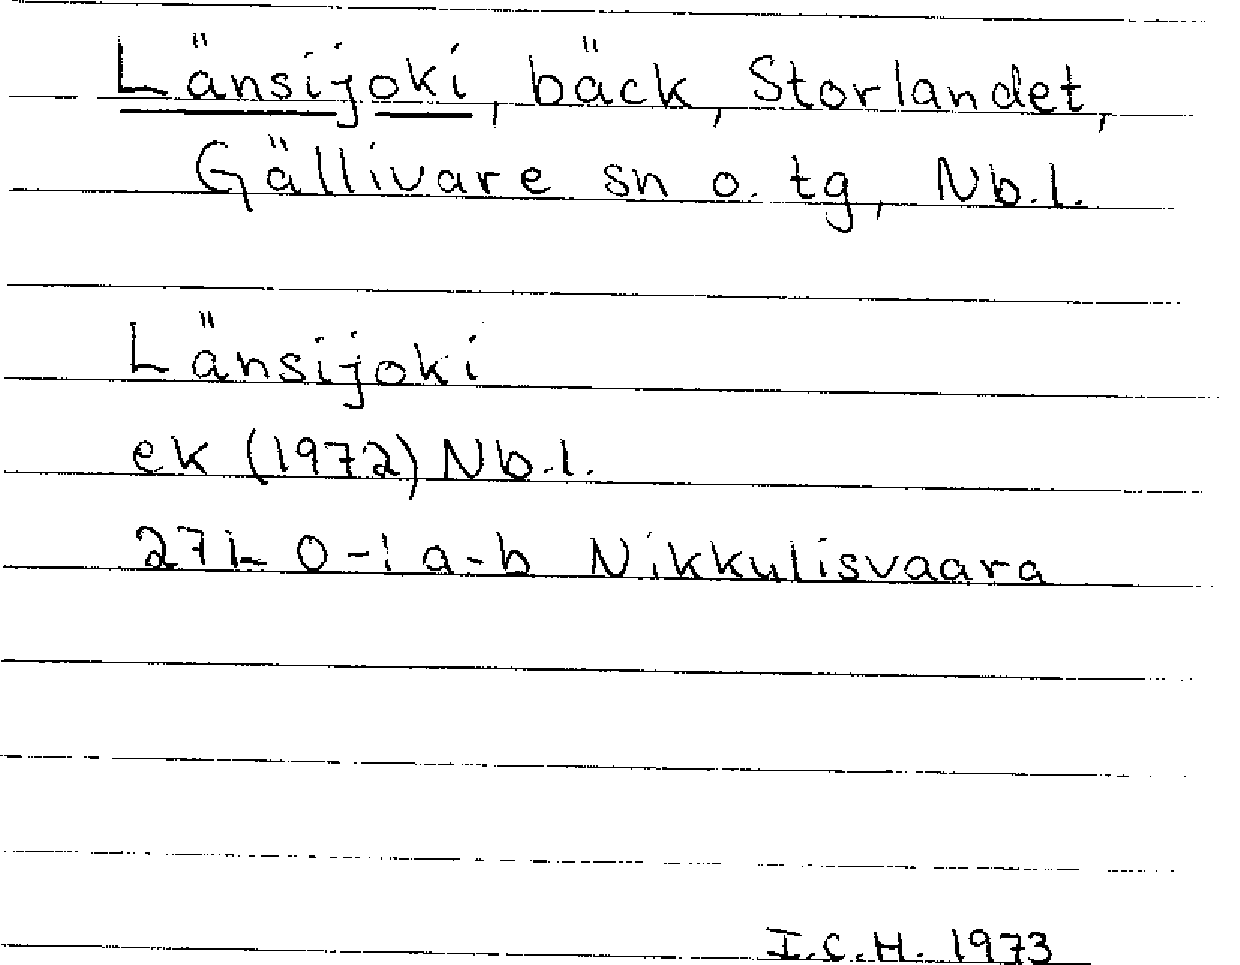 Länsijoki, bäck, Storlandet,
Gällivare sn o. tg, Nb.l.
Länsijoki
ek (1972) Nb.l.
27L 0-1 a-b Nikkulisvaara
I.C.H. 1973